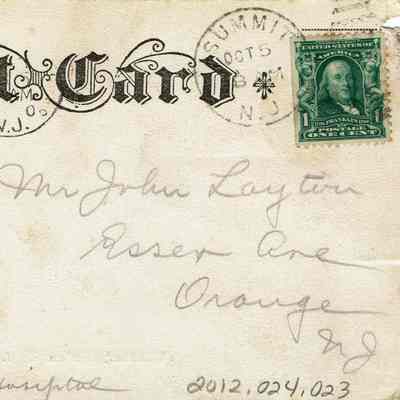 t Card
SUMMIT
OCT 5
N.J.
N.J.
UNITED STATES OF
AMERICA
1
FRANKLIN
1
POSTAGE
ONE CENT
Mr John Layton
Essex Ave
Orange
NJ
Hosiptal
2012.024.023